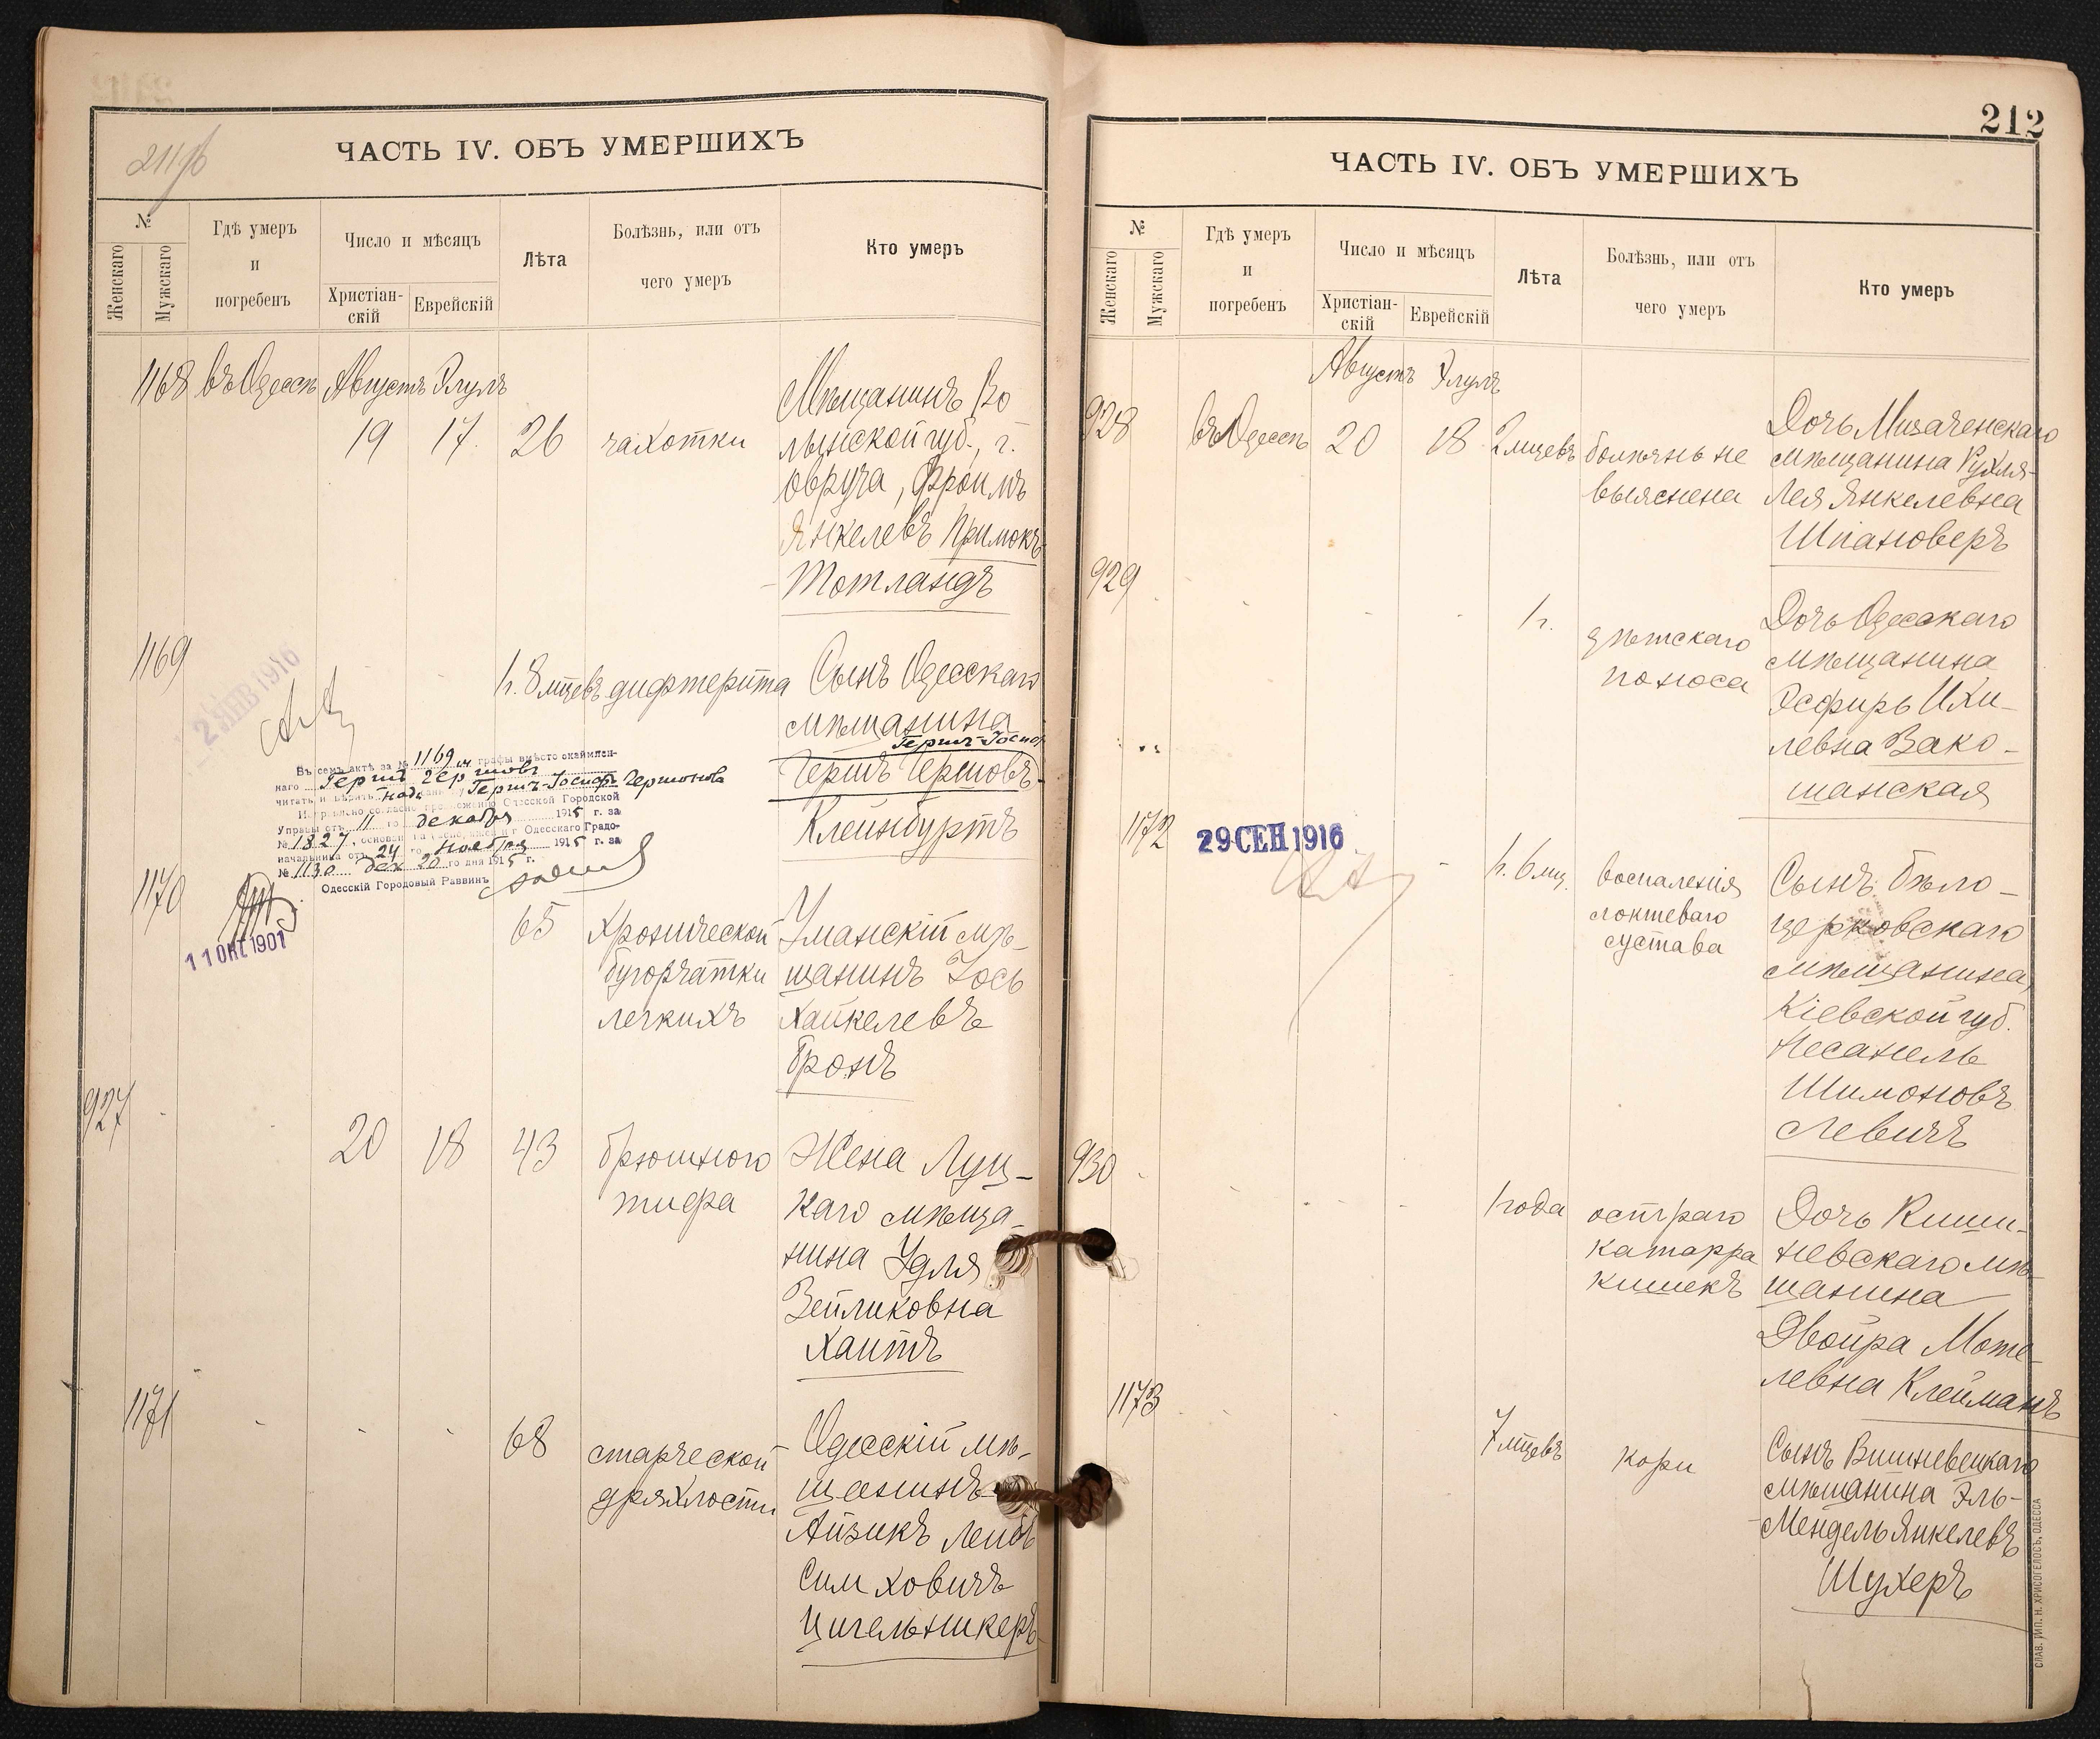 211/б
ЧАСТЬ IV. ОБЪ УМЕРШИХЪ
№
Женскаго
Мужскаго
Гдѣ умеръ
и
погребенъ
Число и мѣсяцъ
Христіан-
скій
Еврейскій
Лѣта
Болѣзнь, или отъ
чего умеръ
Кто умеръ
1168 въ Одессѣ Августъ Элулъ
19 17. 26 чахотки
Мѣщанинъ Во
лынской губ., г.
Овруча, Фроимъ
Янкелевъ Примокъ-
Тотландъ
1169
2 ЯНВ 1916
1 г. 8 мцевъ дифтерита
Сынъ Одесскаго
мѣщанина
Гершъ-Іосиф
Гершъ Гершовъ
Клейнбуртъ
Въ семъ актѣ за № 1169 м графы вмѣсто окаймлен-
наго Гершъ Гершовъ
читать и вѣрить надъ Гершъ-Іосифъ Гершонова
Исправлено согласно предложенію Одесской Городской
Управы отъ 11 го декабря 1915 г. за
№ 1827, основан. на Одесскаго Градо-
начальника отъ 24 го ноября 1915 г. за
№ 1130 дек 20 го дня 1915 г.
Одесскій Городовый Раввинъ
1170
11 ОКТ 1901
65 хронической
бугорчатки
легкихъ
Уманскій мѣ-
щанинъ Іось
Хайкелевъ
Бронъ
927
20 18 43 брюшного
тифа
Жена Луц-
каго мѣща-
нина Удля
Зейликовна
Хаитъ
1171
68 старческой
дряхлости
Одесскій мѣ-
щанинъ
Айзикъ Лейбъ
Симховичъ
Цигельникеръ
212
ЧАСТЬ IV. ОБЪ УМЕРШИХЪ
№
Женскаго
Мужскаго
Гдѣ умеръ
и
погребенъ
Число и мѣсяцъ
Христіан-
скій
Еврейскій
Лѣта
Болѣзнь, или отъ
чего умеръ
Кто умеръ
Августъ Элулъ
928 въ Одессѣ 20 18 2 мцевъ болѣзнь не
выяснена
Дочь Мизаченскаго
мѣщанина Рухля-
Лея Янкелевна
Шпановеръ
929
1 г.
дѣтскаго
поноса
Дочь Одесскаго
мѣщанина
Эсфирь Ихи-
левна Зако-
шанская
1172
29 СЕН 1916
1 г. 6 мц. воспаленія
локтеваго
сустава
Сынъ Бѣло-
церковскаго
мѣщанина,
Кіевской губ.
Несанель
Шимоновъ
Левичъ
930
1 года остраго
катарра
кишекъ
Дочь Киши-
невскаго мѣ-
щанина
Двойра Моте-
левна Клейманъ
1173
7 мцевъ кори
Сынъ Вишневецкаго
мѣщанина Эль-
Мендель Янкелевъ
Шухеръ
СЛАВ. ТИП. Н. ХРИСОГЕЛОСЪ, ОДЕССА